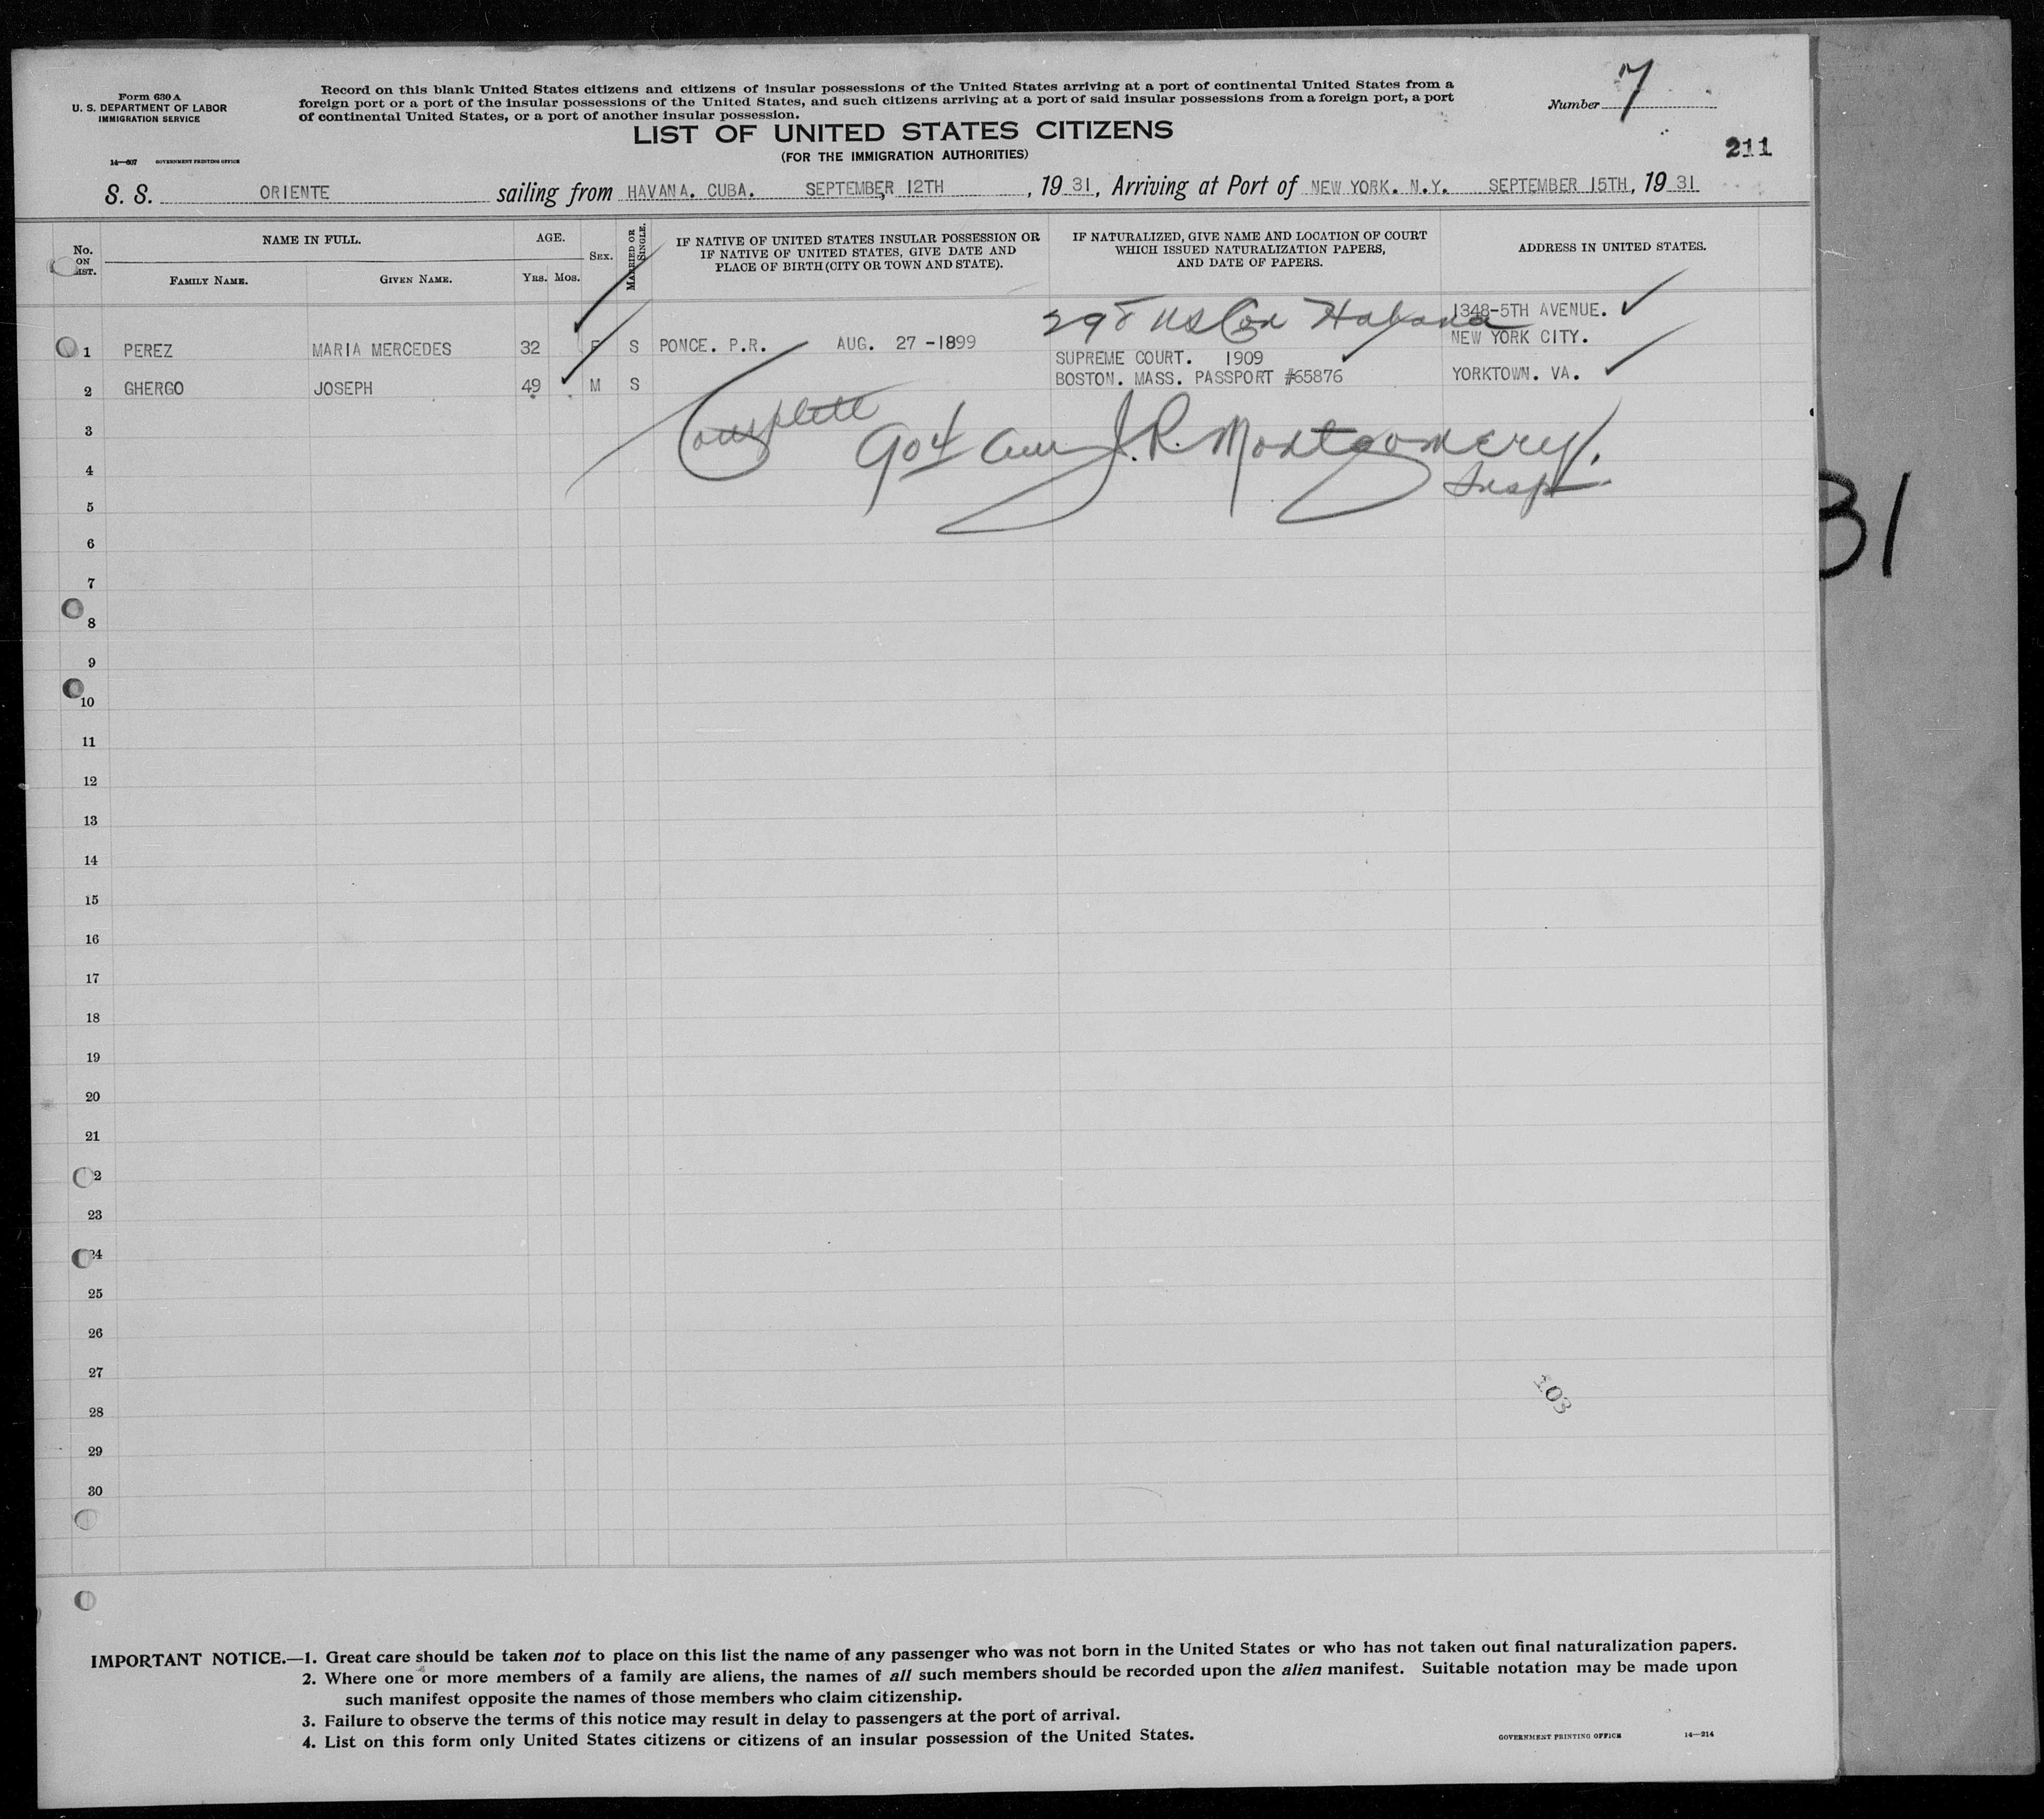 Form 630 A
U. S. DEPARTMENT OF LABOR
IMMIGRATION SERVICE
14—607 GOVERNMENT PRINTING OFFICE
Record on this blank United States citizens and citizens of insular possessions of the United States arriving at a port of continental United States from a
foreign port or a port of the insular possessions of the United States, and such citizens arriving at a port of said insular possessions from a foreign port, a port
of continental United States, or a port of another insular possession.
Number 7
LIST OF UNITED STATES CITIZENS
(FOR THE IMMIGRATION AUTHORITIES)
211
S. S. ORIENTE sailing from HAVANA. CUBA. SEPTEMBER 12TH, 1931, Arriving at Port of NEW YORK. N.Y. SEPTEMBER 15TH, 1931
No. ON LIST.
NAME IN FULL.
FAMILY NAME.
GIVEN NAME.
AGE.
YRS. MOS.
SEX.
MARRIED OR SINGLE.
IF NATIVE OF UNITED STATES INSULAR POSSESSION OR
IF NATIVE OF UNITED STATES, GIVE DATE AND
PLACE OF BIRTH (CITY OR TOWN AND STATE).
IF NATURALIZED, GIVE NAME AND LOCATION OF COURT
WHICH ISSUED NATURALIZATION PAPERS,
AND DATE OF PAPERS.
ADDRESS IN UNITED STATES.
Habana
1348-5TH AVENUE.
NEW YORK CITY.
1 PEREZ MARIA MERCEDES 32 F S PONCE. P.R. AUG. 27 -1899
SUPREME COURT. 1909
2 GHERGO JOSEPH 49 M S BOSTON. MASS. PASSPORT #65876 YORKTOWN. VA.
Complete
904 am J. R. Montgomery.
Insp
3
4
5
6
7
8
9
10
11
12
13
14
15
16
17
18
19
20
21
2
23
24
25
26
27
28
29
30
103
31
IMPORTANT NOTICE.—1. Great care should be taken not to place on this list the name of any passenger who was not born in the United States or who has not taken out final naturalization papers.
2. Where one or more members of a family are aliens, the names of all such members should be recorded upon the alien manifest. Suitable notation may be made upon
such manifest opposite the names of those members who claim citizenship.
3. Failure to observe the terms of this notice may result in delay to passengers at the port of arrival.
4. List on this form only United States citizens or citizens of an insular possession of the United States.
GOVERNMENT PRINTING OFFICE 14—214